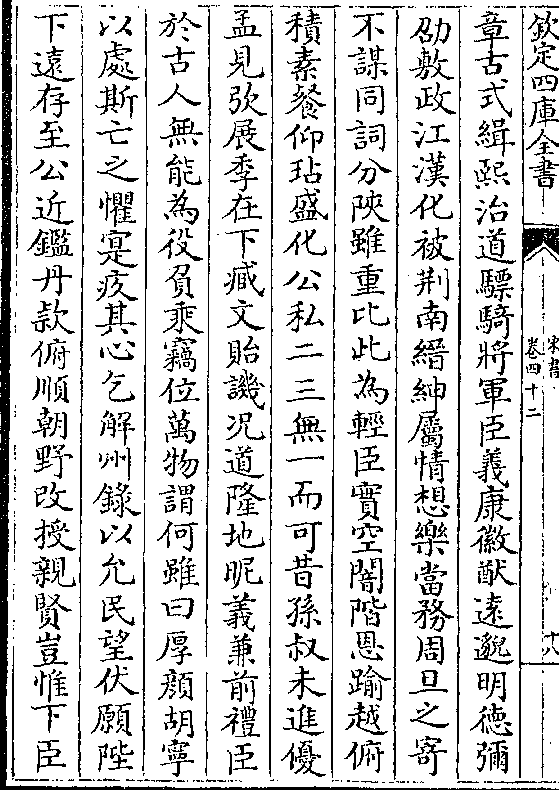 欽定四庫全書
宋書
卷四十二
十八
章古式緝熙治道驃騎將軍臣義康徽猷遠邈明德彌
劭敷政江漢化被荆南縉紳屬情想樂當務周旦之寄
不謀同詞分陝雖重比此為輕臣實空闇階恩踰越俯
積素餐仰玷盛化公私二三無一而可昔孫叔未進優
孟見弢展季在下臧文貽譏况道隆地昵義兼前禮臣
於古人無能為役負乘竊位萬物謂何雖曰厚顔胡寧
以處斯亡之懼寔疚其心乞解州錄以允民望伏願陛
下遠存至公近鑑丹款俯順朝野改授親賢豈惟下臣